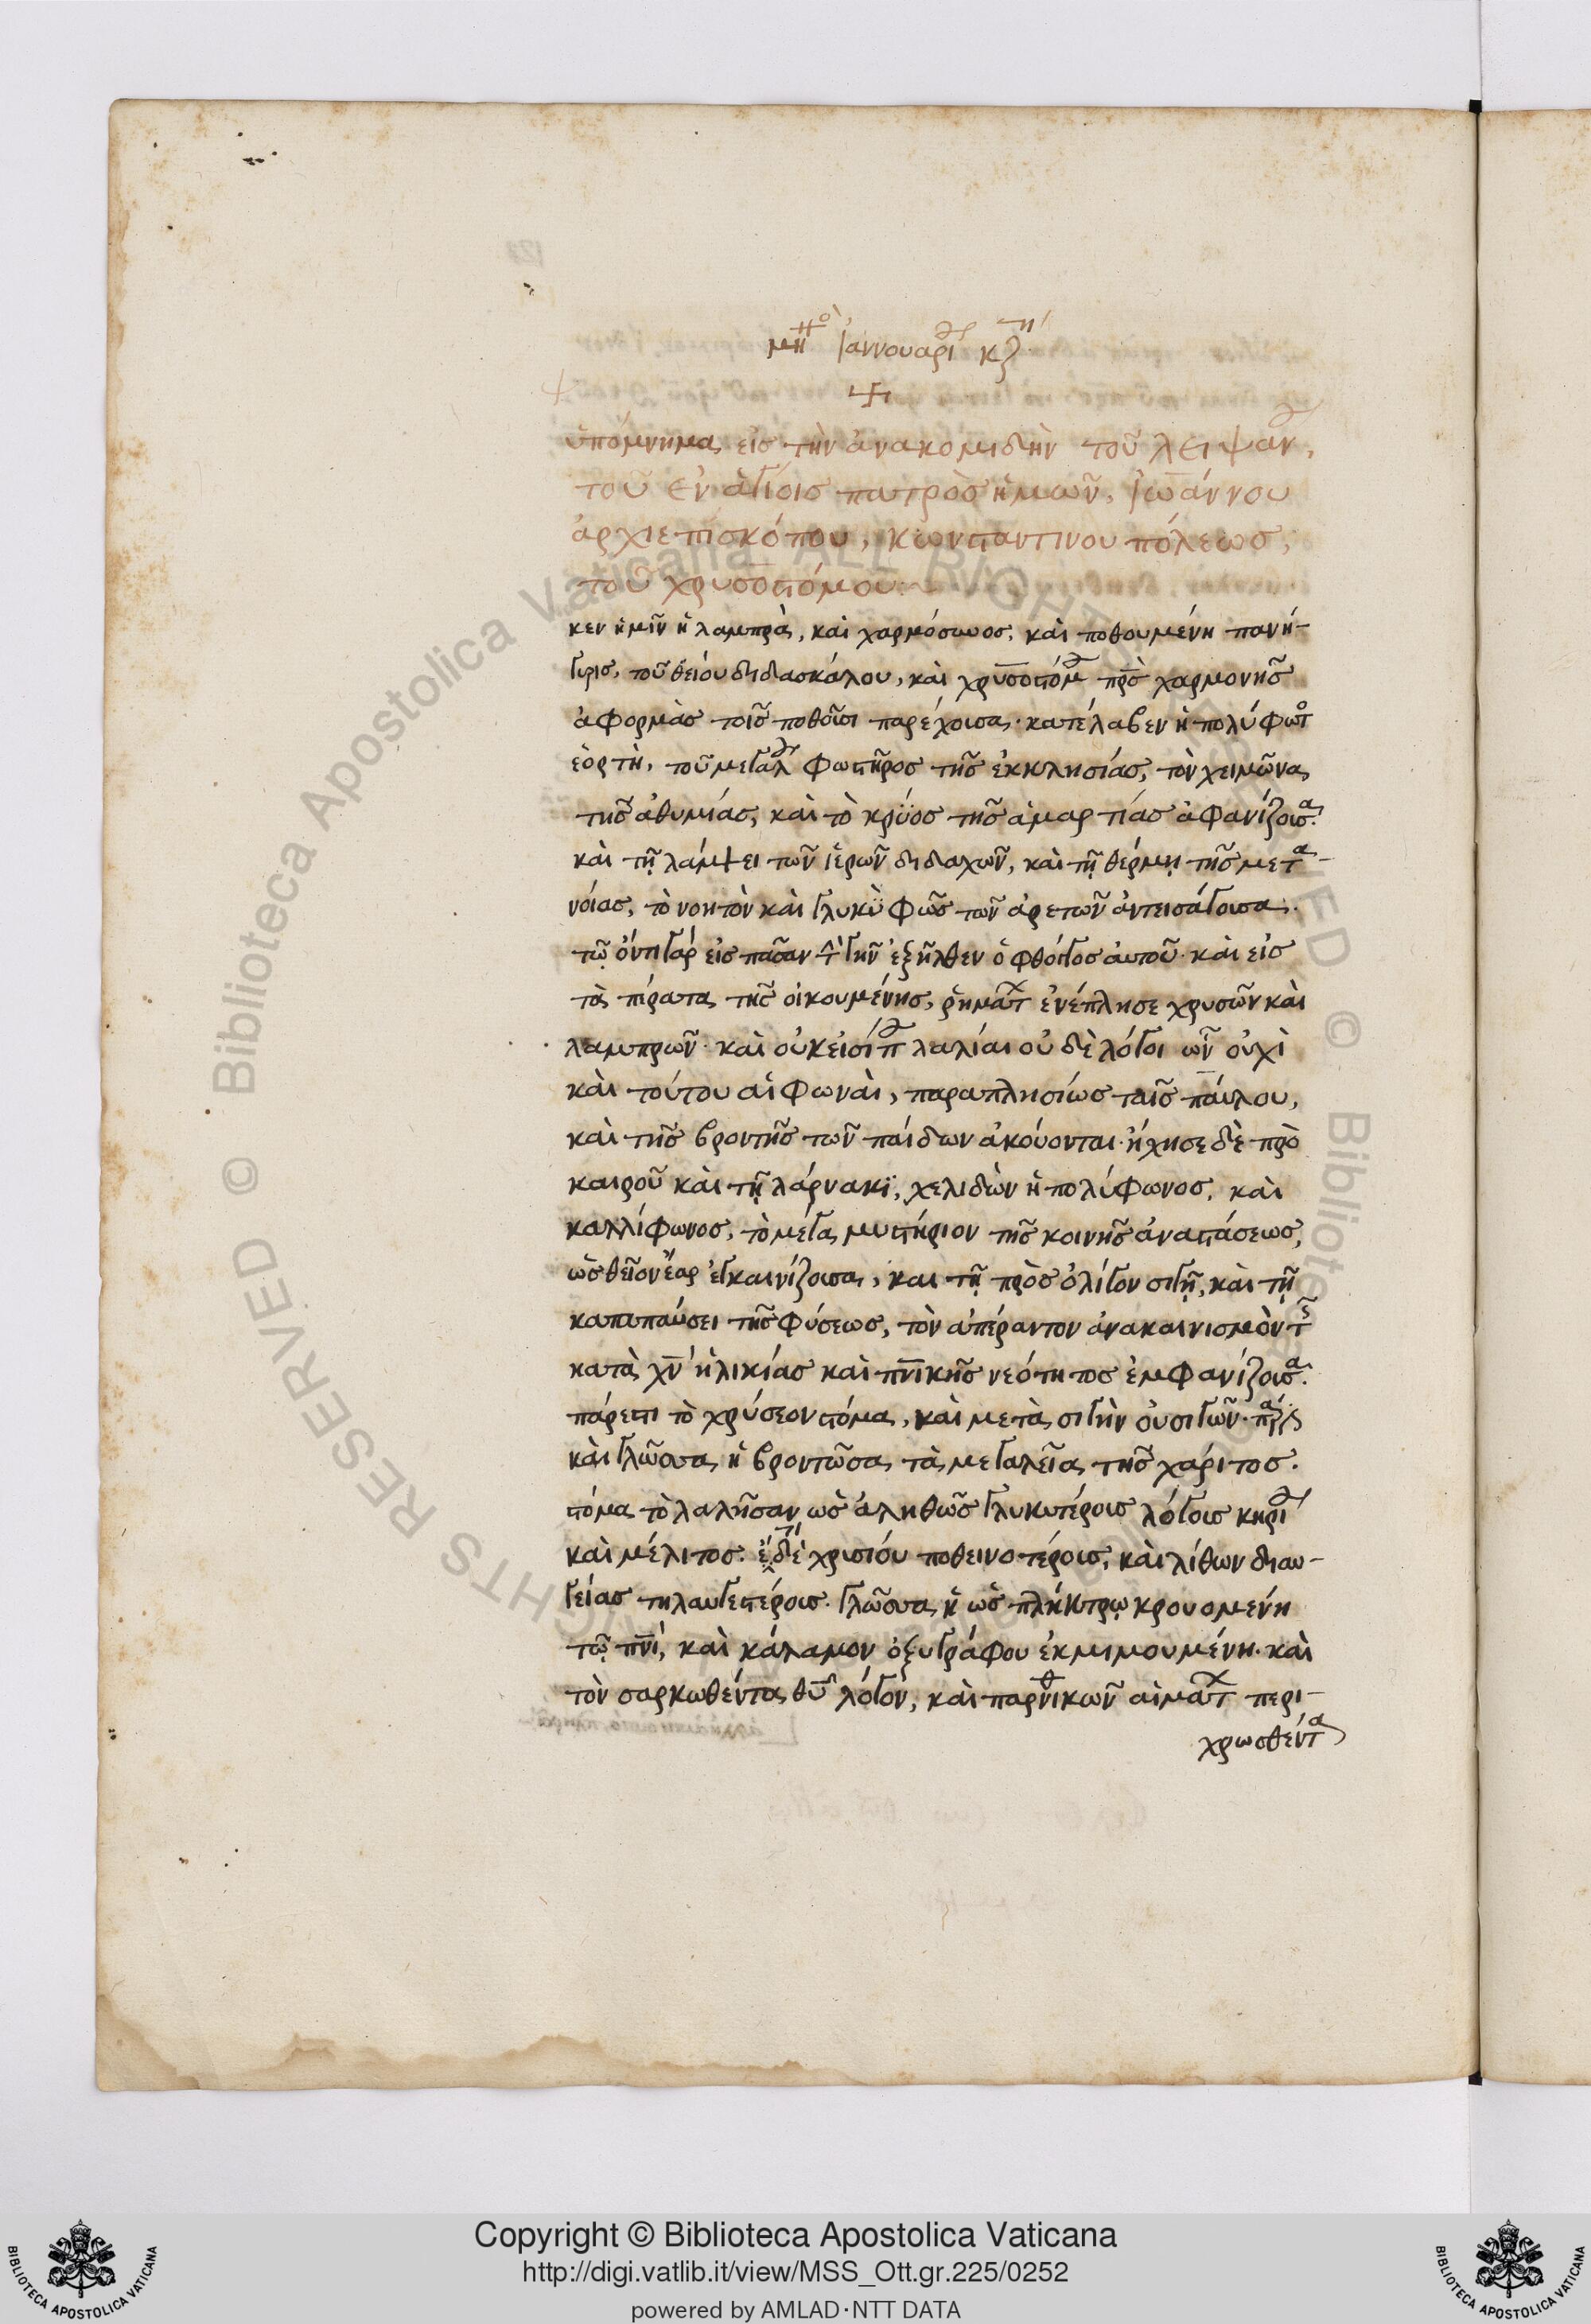 μη Ἰαννουαρί κζ
ὑπόμνημα εἰς τὴν ἀνακομιδὴν τοῦ λειψάν,
τοῦ ἐν ἁγίοις πατρὸς ἡμῶν, Ἰωάννου
ἀρχιεπισκόπου, κωνσταντινουπόλεως,
τοῦ χρυσοστόμου:~
κεν ἡμῖν ἡ λαμπρὰ, καὶ χαρμόσυνος, καὶ ποθουμένη πανή-
γυρις, τοῦ θείου διδασκάλου, καὶ χρυσοστόμ πρὸς χαρμονῆς
ἀφορμὰς τοῖς ποθοῦσι παρέχουσα· κατέλαβεν ἡ πολύφωτο
ἑορτὴ, τοῦ μεγάλ φωστῆρος τῆς ἐκκλησίας, τὸν χειμῶνα
τῆς ἀθυμίας, καὶ τὸ κρύος τῆς ἁμαρτίας ἀφανίζουσα.
καὶ τῇ λάμψει τῶν ἱερῶν διδαχῶν, καὶ τῇ θέρμῃ τῆς μετα-
νοίας, τὸ νοητὸν καὶ γλυκὺ φῶς τῶν ἀρετῶν ἀντεισάγουσα.
τῷ ὄντι γὰρ εἰς πᾶσαν τ γῆν ἐξῆλθεν ὁ φθόγγος αὐτοῦ· καὶ εἰς
τὰ πέρατα τῆς οἰκουμένης, ῥημάτ ἐνέπλησε χρυσῶν καὶ
λαμπρῶν· καὶ οὐκ εἰσί λαλίαι οὐδὲ λόγοι ὧν οὐχὶ
καὶ τούτου αἱ φωναὶ, παραπλησίως ταῖς παύλου,
καὶ τῆς βροντῆς τῶν παίδων ἀκούονται· ἤχησε δὲ πρὸ
καιροῦ καὶ τῇ λάρνακι, χελιδὼν ἡ πολύφωνος, καὶ
καλλίφωνος, τὸ μέγα μυστήριον τῆς κοινῆς ἀναστάσεως,
ὡς θεῖον ἔαρ ἐγκαινίζουσα, και τῇ πρὸς ὀλίγον σιγῇ, καὶ τῇ
καταπαύσει τῆς φύσεως, τὸν ἀπέραντον ἀνακαινισμὸν τ
κατὰ χν ἡλικίας καὶ πνικῆς νεότητος ἐμφανίζουσα.
πάρεστι τὸ χρύσεον στόμα, καὶ μετὰ σιγὴν οὐ σιγῶν·
καὶ γλῶσσα ἡ βροντῶσα τὰ μεγαλεῖα τῆς χάριτος.
στόμα τὸ λαλῆσαν ὡς ἀληθῶς γλυκυτέροις λόγοις κηρί
καὶ μέλιτος. ἔτι δὲ χρυσίου ποθεινοτέροις, καὶ λίθων διαυ-
γείας τηλαυγεστέροις. γλῶσσα ἡ ὡς πλήκτρῳ κρουομένη
τῷ πνι, καὶ κάλαμον ὀξυγράφου ἐκμιμουμένη· καὶ
τὸν σαρκωθέντα θυ λόγον, καὶ παρθνικῶν αἱμάτ περι-
χρωσθέντα
Copyright © Biblioteca Apostolica Vaticana
http://digi.vatlib.it/view/MSS_Ott.gr.225/0252
powered by AMLAD·NTT DATA